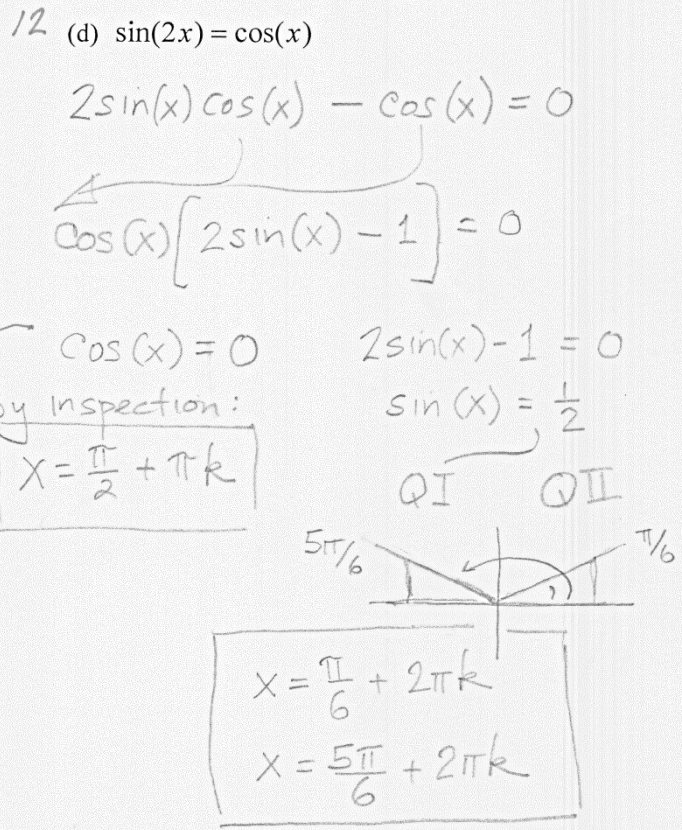 12 (d) sin(2x) = cos(x)
2sin(x) cos(x) - cos(x) = 0
cos(x)[2sin(x) - 1] = 0
cos(x) = 0 2sin(x) - 1 = 0
by inspection: sin(x) = 1/2
x = π/2 + πk QI QII
5π/6 π/6
x = π/6 + 2πk
x = 5π/6 + 2πk